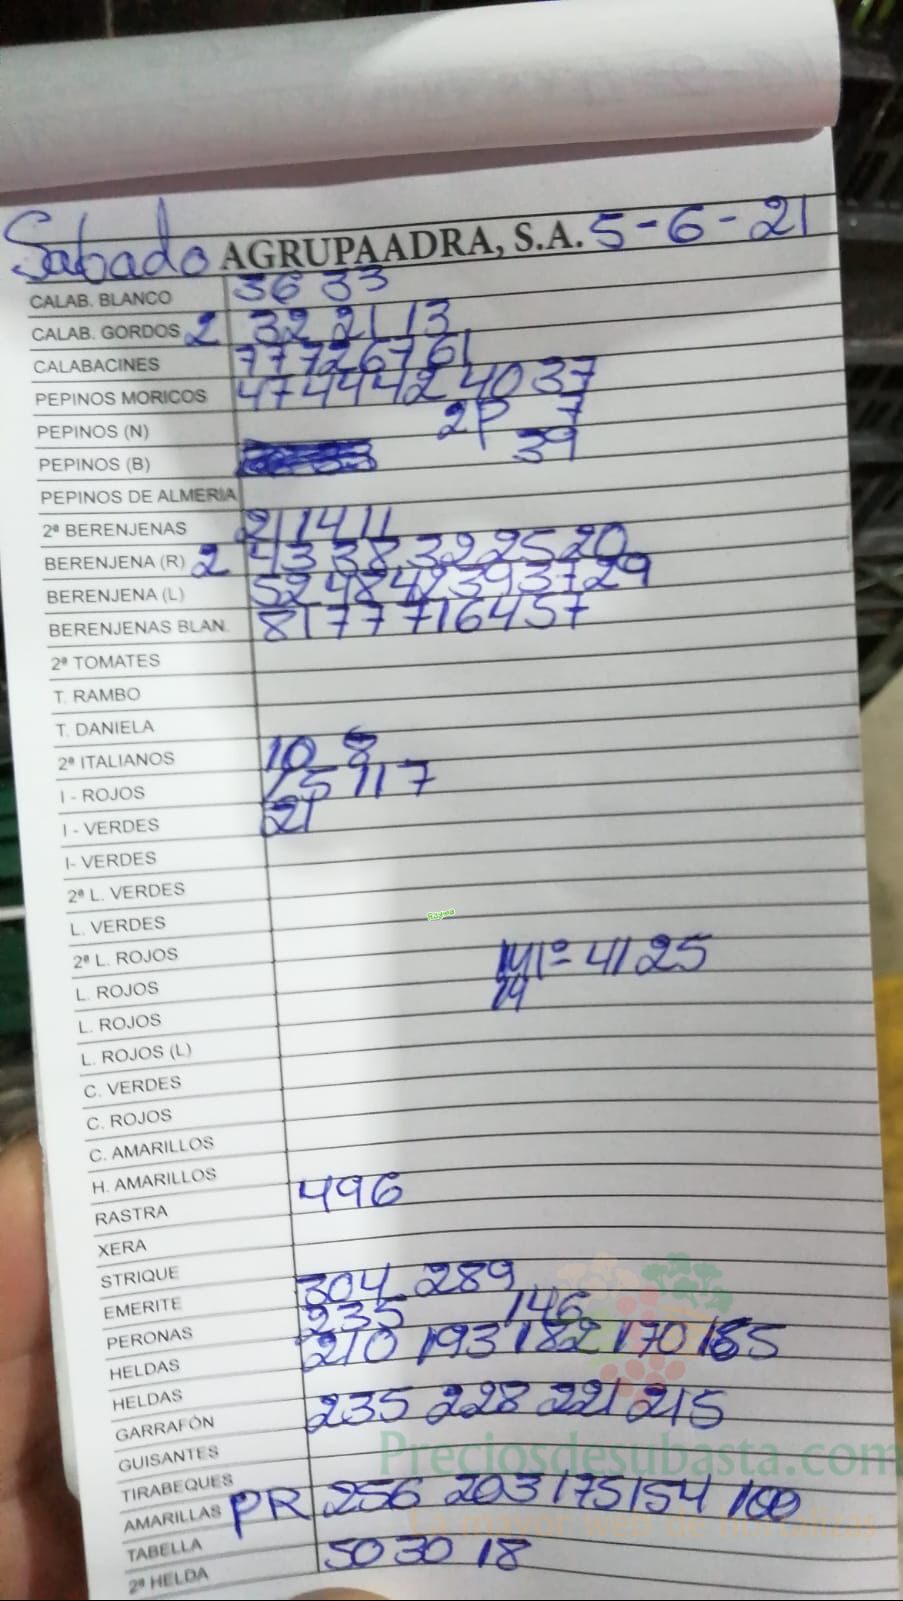 Sabado AGRUPAADRA, S.A. 5-6-21
CALAB. BLANCO 36 33
CALAB. GORDOS 2 32 21 13
CALABACINES 77 72 67 61
PEPINOS MORICOS 47 44 42 40 37
PEPINOS (N) 2P 7
PEPINOS (B) 39
PEPINOS DE ALMERIA
2ª BERENJENAS 21 14 11
BERENJENA (R) 2 43 38 32 25 20
BERENJENA (L) 52 48 42 39 37 29
BERENJENAS BLAN. 81 77 71 64 57
2ª TOMATES
T. RAMBO
T. DANIELA
2ª ITALIANOS 10 8
I - ROJOS 15 11 7
I - VERDES 21
I- VERDES
2ª L. VERDES
L. VERDES
2ª L. ROJOS 41 25
L. ROJOS 19
L. ROJOS
L. ROJOS (L)
C. VERDES
C. ROJOS
C. AMARILLOS
H. AMARILLOS
RASTRA 496
XERA
STRIQUE
EMERITE 304 289
PERONAS 235 146
HELDAS 210 193 182 170 165
HELDAS
GARRAFÓN 235 228 221 215
GUISANTES
TIRABEQUES
AMARILLAS PR 256 203 175 154 100
TABELLA
2ª HELDA 50 30 18
Preciosdesubasta.com
La mayor web de hortalizas